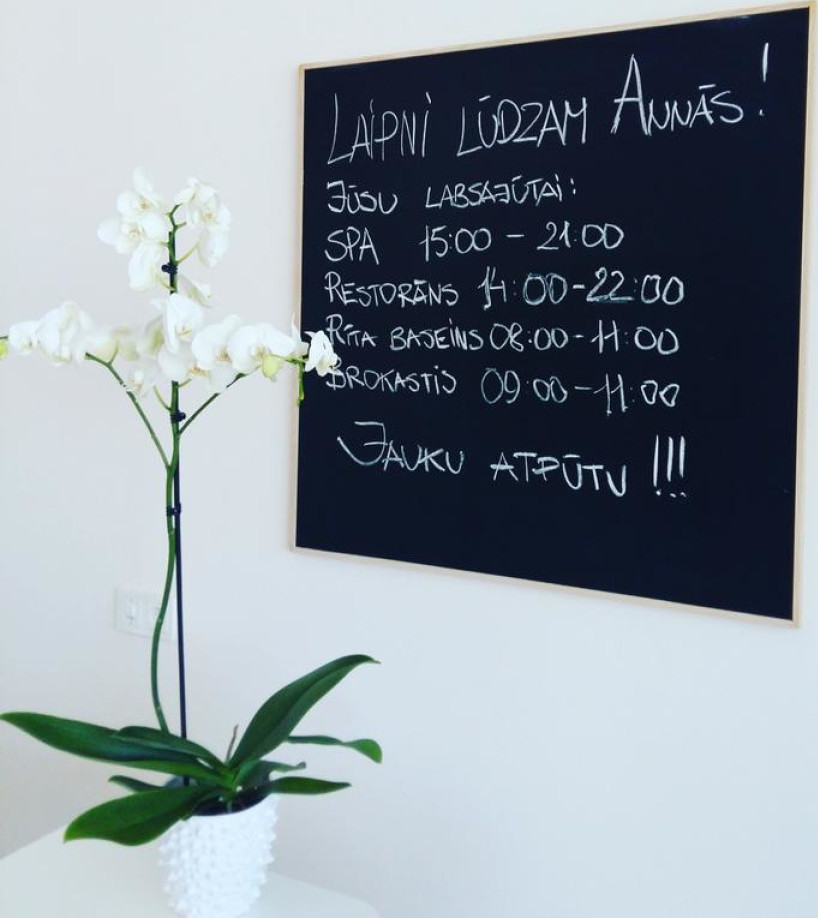 LAIPNI LŪDZAM ANNĀS!
JŪSU LABSAJŪTAI:
SPA 15:00 - 21:00
RESTORĀNS 14:00-22:00
RĪTA BASEINS 08:00-11:00
BROKASTIS 09:00-11:00
JAUKU ATPŪTU !!!